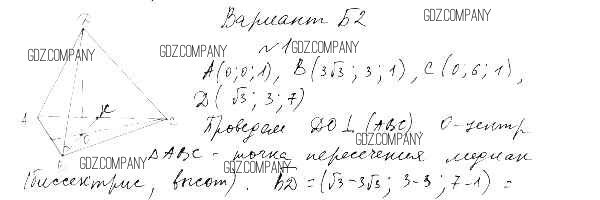 Вариант Б2
GDZ.COMPANY
GDZ.COMPANY GDZ.COMPANY №1 GDZ.COMPANY
A(0;0;1), B(3√3;3;1), C(0;6;1),
D(√3;3;7)
Проведем DO⊥(ABC) O-центр
GDZ.COMPANY
GDZ.COMPANY ΔABC - точка пересечения медиан
GDZ.COMPANY
(биссектрис, высот). BD = (√3-3√3; 3-3; 7-1) =
D
K
A
C
O
B